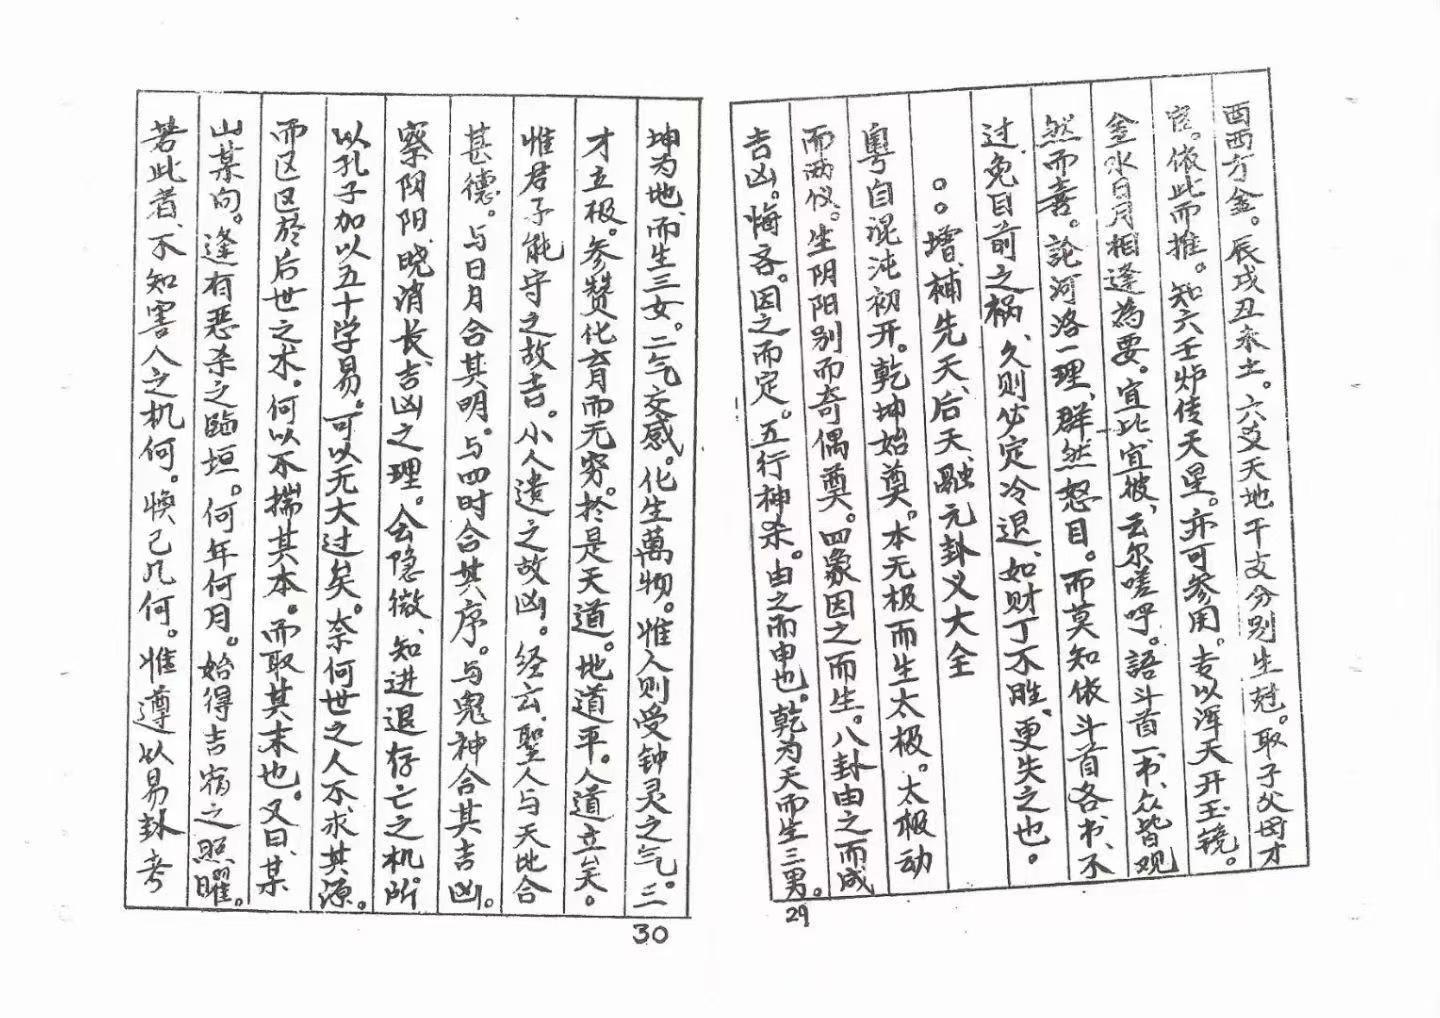 酉西方金。辰戌丑未土。六爻天地干支分别生尅。取子父母才
官。依此而推。知六壬炉传天星。亦可参用。专以浑天开玉镜。
金水日月相逢為要。宜比宜彼、云尔嗟呼。語斗首一书、众皆观
然而喜。論河洛一理、群然怒目。而莫知依斗首各书、不
过免目前之祸、久则必定冷退、如财丁不胜、更失之也。
。。增補先天、后天、融元卦义大全
粤自混沌初开。乾坤始奠。本无极而生太极。太极动
而两仪。生阴阳别而奇偶奠。四象因之而生。八卦由之而成
吉凶。悔吝。因之而定。五行神杀。由之而申也。乾为天而生三男。
29
坤为地、而生三女。二气交感。化生萬物。惟人则受钟灵之气。三
才立极。参赞化育而无穷。於是天道。地道平。人道立矣。
惟君子能守之故吉。小人遗之故凶。经云、聖人与天地合
甚德。与日月合其明。与四时合其序。与鬼神合其吉凶。
察阴阳、晓消长、吉凶之理。会隐微、知进退存亡之机。所
以孔子加以五十学易。可以无大过矣。奈何世之人不求其源。
而区区於后世之术。何以不揣其本。而取其末也。又曰、某
山某向。逢有恶杀之臨垣。何年何月。始得吉宿之照曜。
若此者、不知害人之机何。悞己几何。惟遵以易卦考
30